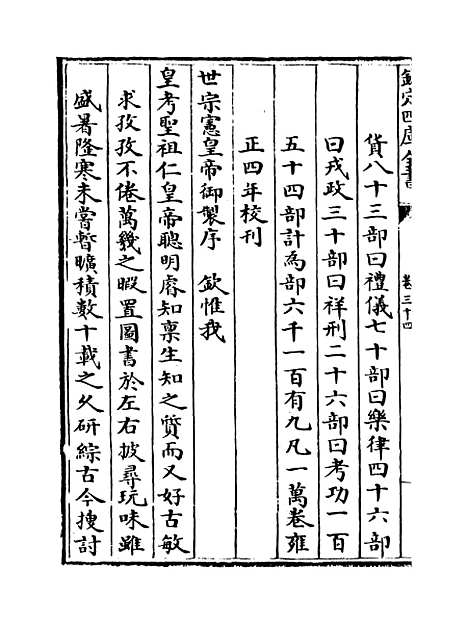 欽定四庫全書
卷三十四
貨八十三部曰禮儀七十部曰樂律四十六部
曰戎政三十部曰祥刑二十六部曰考功一百
五十四部計為部六千一百有九凡一萬卷雍
正四年校刊
世宗憲皇帝御製序　欽惟我
皇考聖祖仁皇帝聰明睿知稟生知之質而又好古敏
求孜孜不倦萬幾之暇置圖書於左右披尋玩味雖
盛暑隆寒未嘗暫曠積數十載之久研綜古今搜討